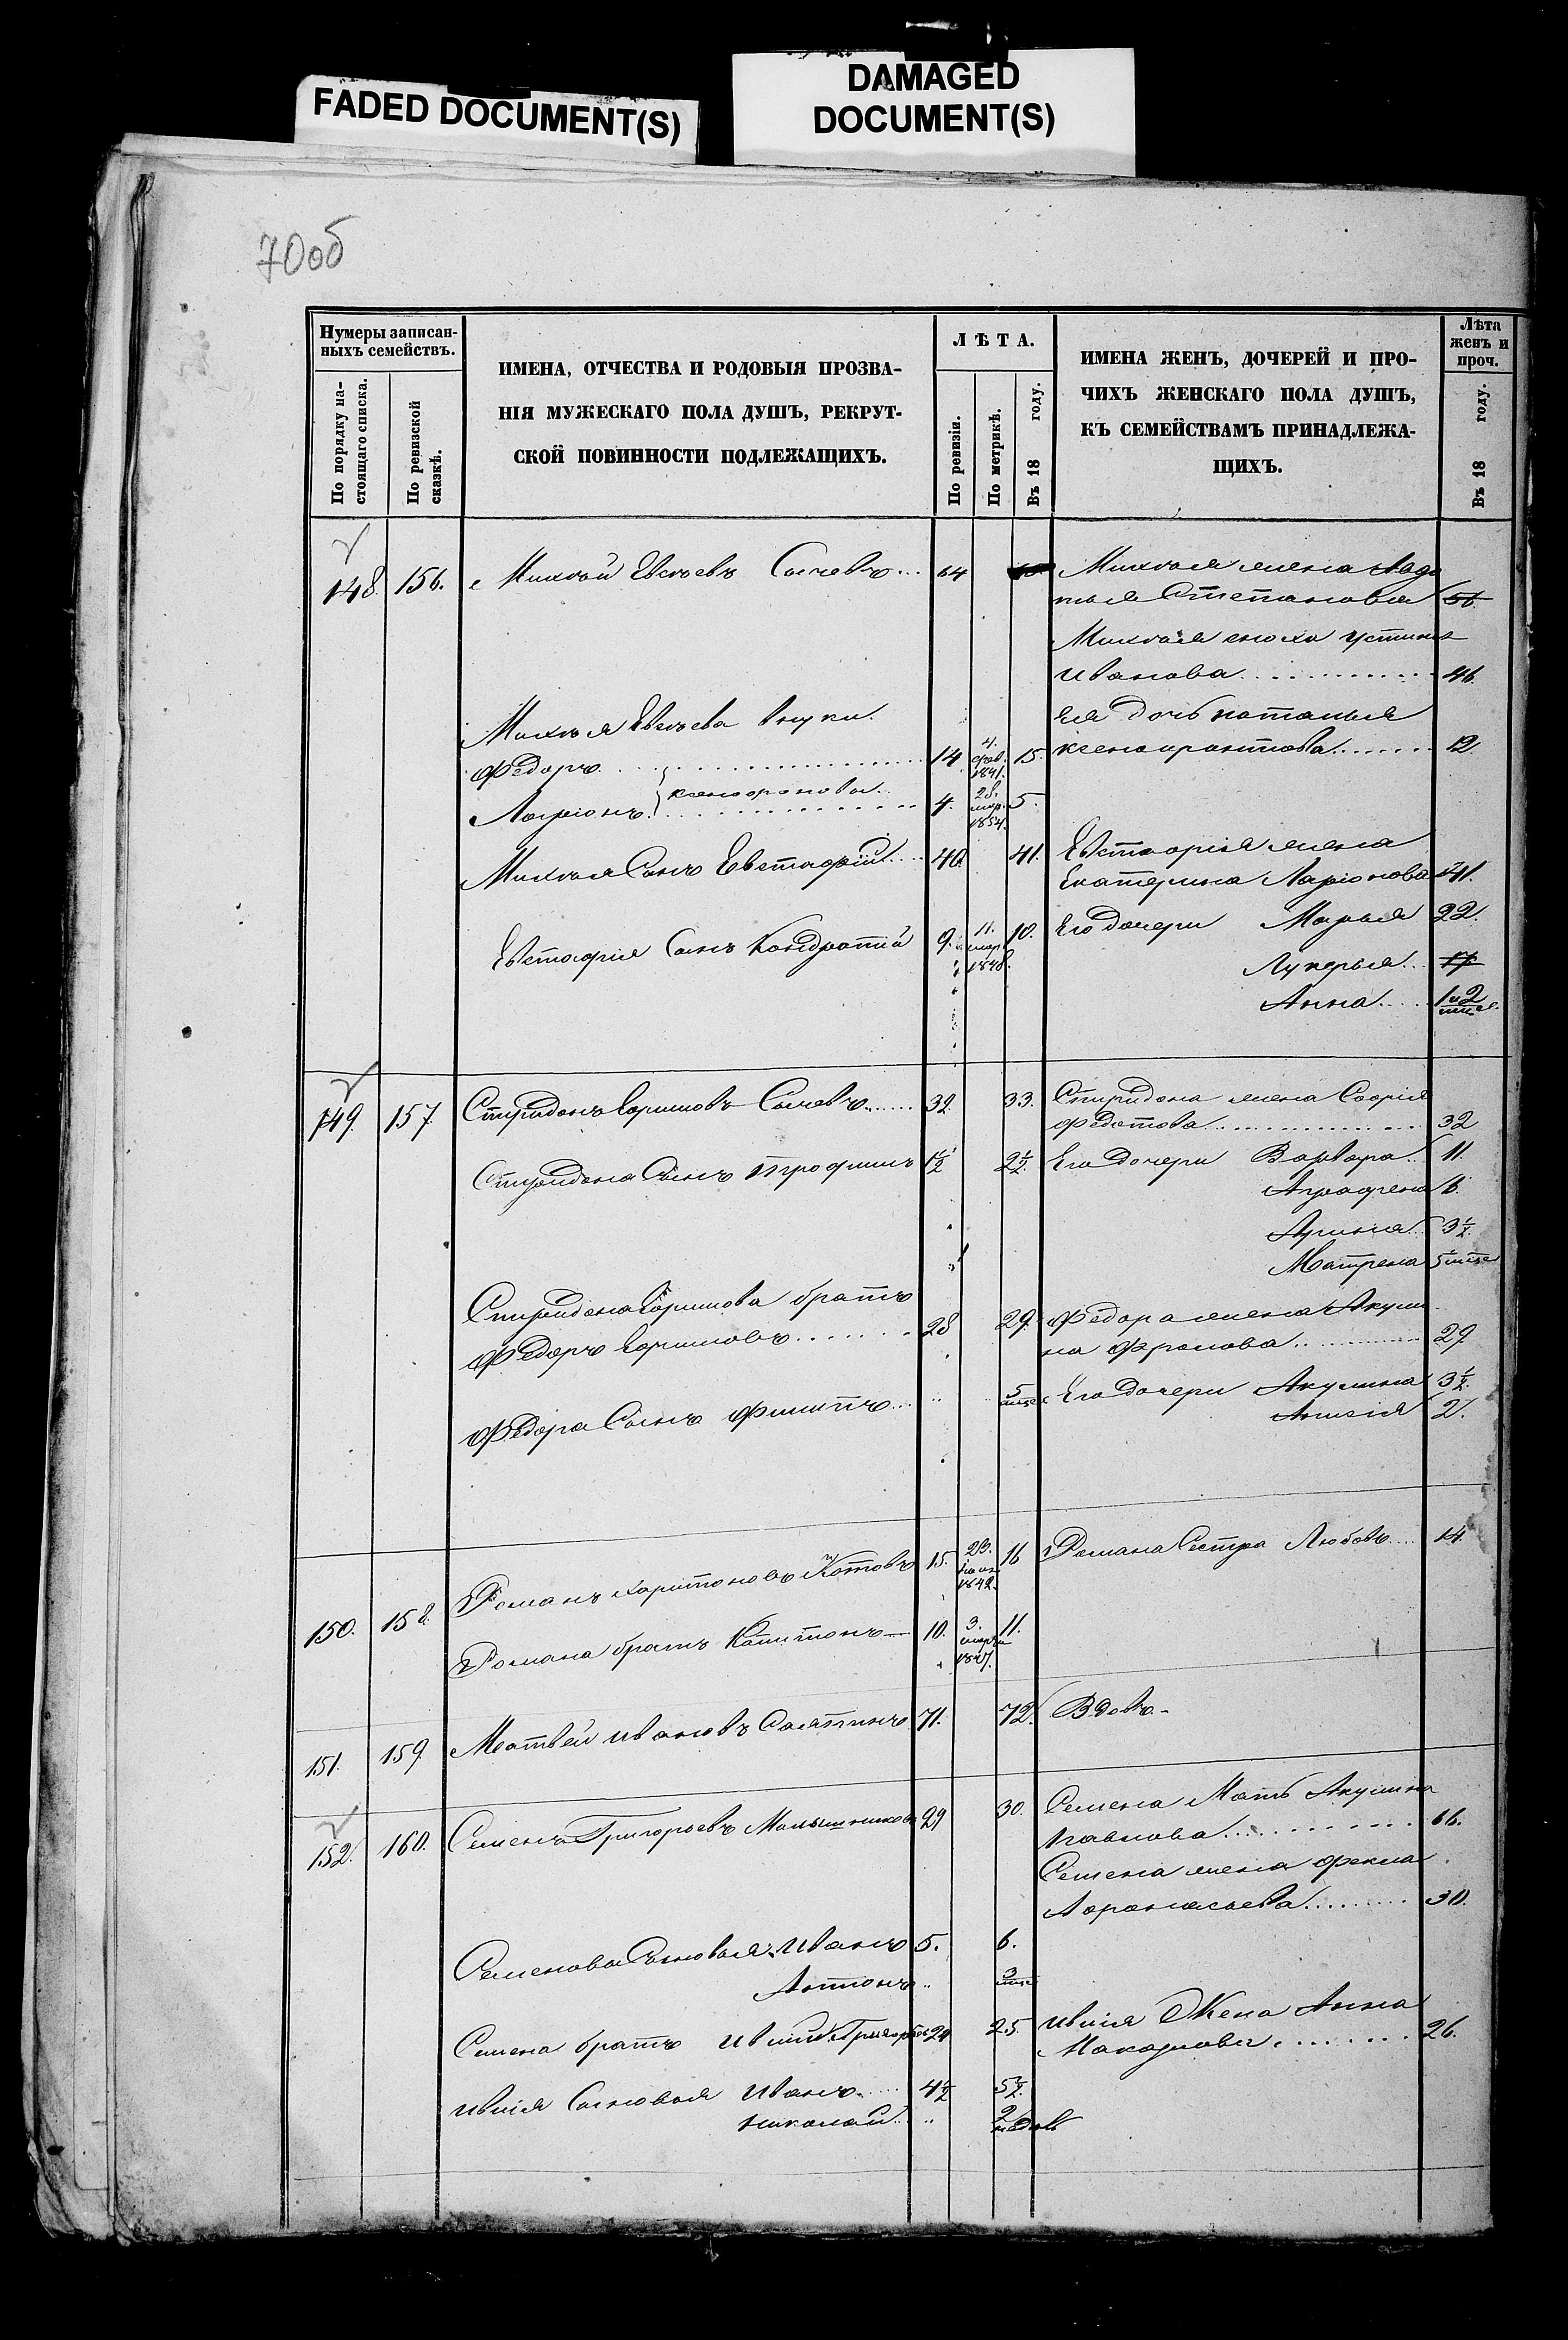 FADED DOCUMENT(S)
DAMAGED
DOCUMENT(S)
70об
Нумеры записан-
ныхъ семействъ.
По порядку на-
стоящаго списка.
По ревизской
сказкѣ.
ИМЕНА, ОТЧЕСТВА И РОДОВЫЯ ПРОЗВА-
НІЯ МУЖЕСКАГО ПОЛА ДУШЪ, РЕКРУТ-
СКОЙ ПОВИННОСТИ ПОДЛЕЖАЩИХЪ.
ЛѢТА.
По ревизіи.
По метрикѣ.
Въ 18 году.
ИМЕНА ЖЕНЪ, ДОЧЕРЕЙ И ПРО-
ЧИХЪ ЖЕНСКАГО ПОЛА ДУШЪ,
КЪ СЕМЕЙСТВАМЪ ПРИНАДЛЕЖА-
ЩИХЪ.
Лѣта
женъ и
проч.
Въ 18 году.
148. 156. Сычевъ... 64 жена Авдо
тья Степанова 56
сноха Устинья
Иванова 46.
внуки
ея дочь Наталья
Федоръ 14 4. фев. 1841. 15. Ксенофонтова 12
Ларіонъ 4. 28. мар. 1854. 5.
Ксенофонтовы
Сынъ Евстафій 40 41. Евстафія жена
Екатерина Ларіонова 41.
Евстафія Сынъ Кондратій 9. 11. мар. 1848. 10. Его дочери Марья 22.
Лукерья 17
Анна 1 и 2 мѣс.
149. 157. Спиридонъ Ефимовъ Сычевъ 32. 33. Спиридона жена Софія
Федотова 32
Спиридона Сынъ Трофимъ 1½ 2½. Его дочери Варвара 11.
Аграфена 6.
Арина 3½
Матрена 5 мѣс
Спиридона Ефимова братъ
Федоръ Ефимовъ 28 29. Федора жена Акули
на Фролова 29
Федора Сынъ Филипъ ... 5 мѣс. Его дочери Акулина 3½.
Анисія 2.
150. 158. Романъ Харитоновъ Котовъ 15. 23. 1842. 16 Романа Сестра Любовь 14.
Романа братъ Капитонъ 10. 3. марта 1847. 11.
151. 159. Матвей Ивановъ 71. 72. Вдовъ
152. 160. Семенъ Григорьевъ 29 30. Семена Мать Акулина
Павлова 66.
Семена жена Фекла
Афонасьева 30.
Семенова Сыновья: Иванъ 5. 6.
Антонъ .. 3 мѣс
Семена братъ Ивлій Григорьев 24 25. Ивлія Жена Анна
Макарова 26.
Ивлія Сыновья Иванъ 4½ 5½.
Николай .. 2 недѣль